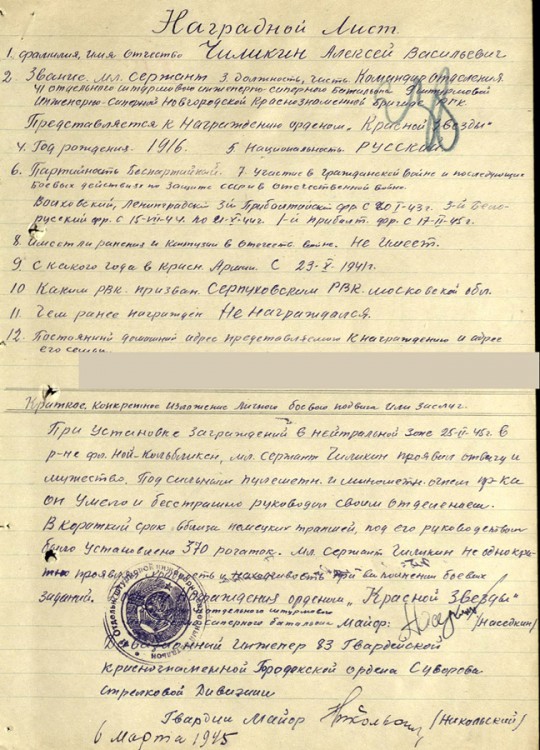 Наградной Лист.
1. Фамилия, имя отчество Чиликин Алексей Васильевич
2. Звание. мл. сержант 3. Должность, часть. Командир отделения.
41 отдельного штурмового инженерно-саперного батальона 2 штурмовой
Инженерно-саперной Новгородской Краснознаменной бригады РГК.
Представляется к награждению орденом „Красной звезды"
4. Год рождения. 1916. 5. Национальность. Русский
6. Партийность беспартийный. 7. Участие в гражданской войне и последующих
боевых действиях по защите СССР в отечественной войне.
Волховский, Ленинградский 3й Прибалтийский фр. С 20-I-43г. 3-й Бело-
русский фр. с 15-VII-44 по 21-X-44г. 1-й прибалт. фр. с 17-II-45г.
8. Имеет ли ранения и контузии в отечеств. войне. Не имеет.
9. С какого года в Красн. Армии. С 23-X-1941г.
10. Каким РВК. призван. Серпуховским РВК. Московской обл.
11. Чем ранее награжден Не награждался.
12. Постоянный домашний адрес представляемого к награждению и адрес
его семьи.
Краткое, конкретное изложение личного боевого подвига или заслуг.
При установке заграждений в нейтральной зоне 25-II-45г. в
р-не фл. Ной-Кольбникен, мл. сержант Чиликин проявил отвагу и
мужество. Под сильным пулеметн. и минометн. огнем пр-ка
он умело и бесстрашно руководил своим отделением.
В короткий срок, вблизи немецких траншей, под его руководством
было установлено 370 рогаток. мл. сержант Чиликин неоднокра-
тно проявлял и находчивость при выполнении боевых
заданий. награждения орденом „Красной Звезды"
отдельного штурмового
саперного батальона Майор: (Наседкин)
Инженер 83 Гвардейской
Краснознаменной Городокской ордена Суворова
стрелковой Дивизии
Гвардии Майор (Никольский)
6 Марта 1945